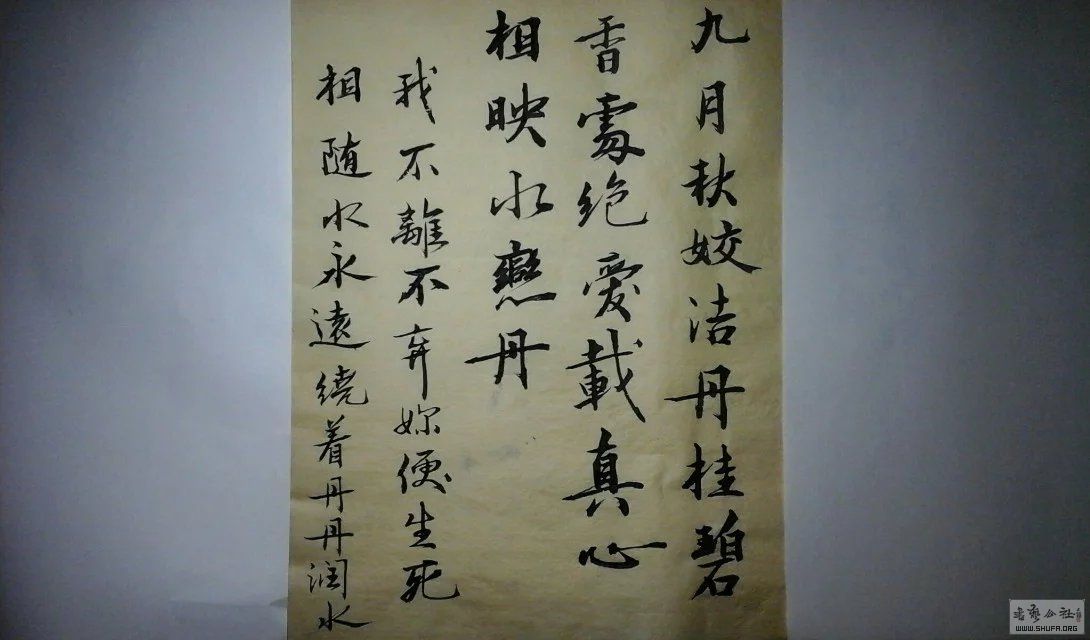 九月秋姣洁丹桂碧
香處绝愛載真心
相映水戀丹
我不離不弃妳便生死
相随水永遠绕着丹丹润水
书艺公社
WWW.SHUFA.ORG